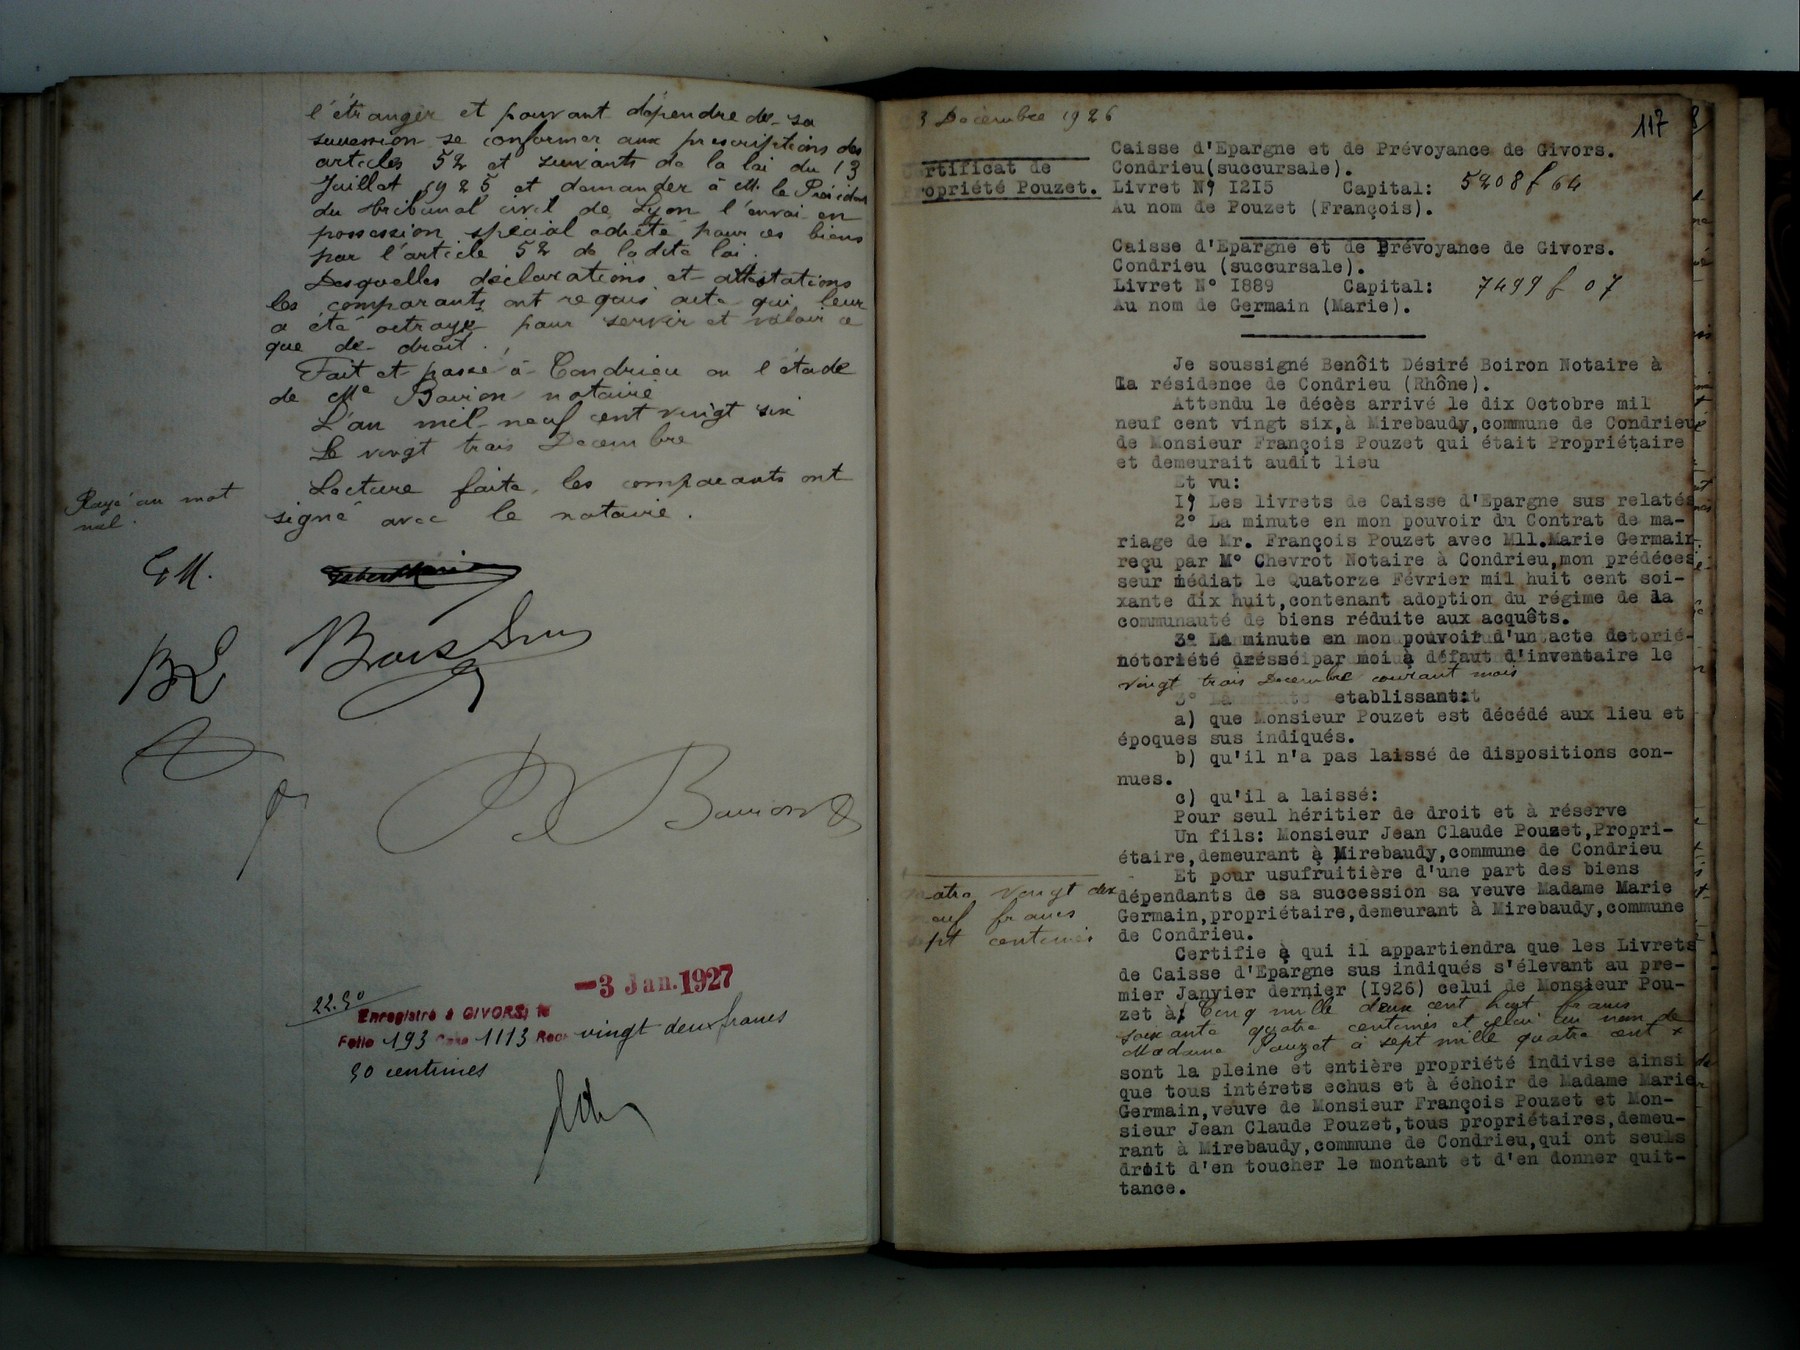 l'étranger et pouvant dépendre de sa
succession se conformer aux prescriptions des
articles 52 et suivants de la loi du 13
Juillet 1925 et demander à M. le Président
du tribunal civil de Lyon l'envoi en
possession spécial édicté pour ces biens
par l'article 52 de ladite loi.
Desquelles déclarations et attestations
les comparants ont requis acte qui leur
a été octroyé pour servir et valoir ce
que de droit.
Fait et passé à Condrieu en l'étude
de Me Boiron notaire
L'an mil neuf cent vingt six
Le vingt trois Decembre
Lecture faite, les comparants ont
signé avec le notaire.
Rayé un mot
nul.
G M.
B L
Boiron
-3 Jan. 1927
22.50
Enregistré à GIVORS, le
Folio 193 Case 1113 Reçu vingt deux francs
50 centimes
3 Décembre 1926
117
rtificat de
ropriété Pouzet.
Caisse d'Epargne et de Prévoyance de Givors.
Condrieu(succursale).
Livret N° I2I5 Capital: 5208 f 64
Au nom de Pouzet (François).
Caisse d'Epargne et de Prévoyance de Givors.
Condrieu (succursale).
Livret N° I889 Capital: 7499 f 07
Au nom de Germain (Marie).
Je soussigné Benôit Désiré Boiron Notaire à
la résidence de Condrieu (Rhône).
Attendu le décès arrivé le dix Octobre mil
neuf cent vingt six,à Mirebaudy,commune de Condrieu
de Monsieur François Pouzet qui était Propriétaire
et demeurait audit lieu
Et vu:
I° Les livrets de Caisse d'Epargne sus relatés
2° La minute en mon pouvoir du Contrat de ma-
riage de Mr. François Pouzet avec Mll.Marie Germain
reçu par M° Chevrot Notaire à Condrieu,mon prédéces
seur médiat le Quatorze Février mil huit cent soi-
xante dix huit,contenant adoption du régime de la
communauté de biens réduite aux acquêts.
3° La minute en mon pouvoir d'un acte de
notoriété dréssé par moi à défaut d'inventaire le
vingt trois Decembre courant mois
etablissant:
a) que Monsieur Pouzet est décédé aux lieu et
époques sus indiqués.
b) qu'il n'a pas laissé de dispositions con-
nues.
c) qu'il a laissé:
Pour seul héritier de droit et à réserve
Un fils: Monsieur Jean Claude Pouzet,Propri-
étaire,demeurant à Mirebaudy,commune de Condrieu
Et pour usufruitière d'une part des biens
dépendants de sa succession sa veuve Madame Marie
Germain,propriétaire,demeurant à Mirebaudy,commune
de Condrieu.
Certifie à qui il appartiendra que les Livrets
de Caisse d'Epargne sus indiqués s'élevant au pre-
mier Janvier dernier (I926) celui de Monsieur Pou-
zet à Cinq mille deux cent huit francs
soixante quatre centimes et celui au nom de
Madame Pouzet à sept mille quatre cent x
vingt dix
neuf francs
sept centimes
sont la pleine et entière propriété indivise ainsi
que tous intérets echus et à échoir de Madame Marie
Germain,veuve de Monsieur François Pouzet et Mon-
sieur Jean Claude Pouzet,tous propriétaires,demeu-
rant à Mirebaudy,commune de Condrieu,qui ont seuls
droit d'en toucher le montant et d'en donner quit-
tance.